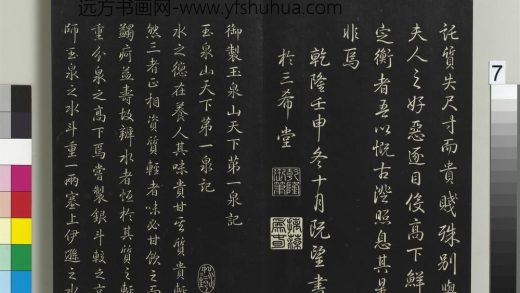 远方书画网-www.yfshuhua.com
託質失尺寸而貴賤殊別懸
夫人之好惡逐目後高下鮮
定衡者吾以慨古鑑照息其是
非焉
乾隆壬申冬十月既望書
於三希堂
御製玉泉山天下第一泉記
玉泉山天下第一泉記
水之德在養人其味貴甘其質貴輕
然三者正相資質輕者味必甘飲之而
蠲疴益壽故辨水者恒於其質之輕
重分泉之高下焉嘗製銀斗較之京
師玉泉之水斗重一兩塞上伊遜之水
7